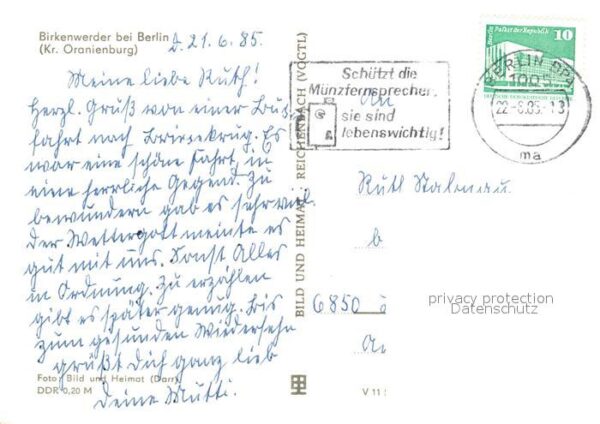 Birkenwerder bei Berlin
(Kr. Oranienburg)
d. 21.6.85.
Meine liebe Ruth!
Herzl. Gruß von einer Bus-
fahrt nach Es
war eine schöne Fahrt, in
eine herrliche Gegend. Zu
bewundern gab es sehr viel.
Der Wettergott meinte es
gut mit uns. Sonst Alles
in Ordnung. Zu erzählen
gibt es später genug. Bis
zum gesunden Wiedersehn
grüßt Dich ganz lieb
Deine Mutti.
Foto: Bild und Heimat (Darr)
DDR 0,20 M
BILD UND HEIMAT REICHENBACH (VOGTL)
V 11
Schützt die
Münzfernsprecher,
sie sind
lebenswichtig!
Berlin Palast der Republik
10
BERLIN BPA
1005
22.-6.85.-13
ma
An
Ruth
b
6850
An
privacy protection
Datenschutz